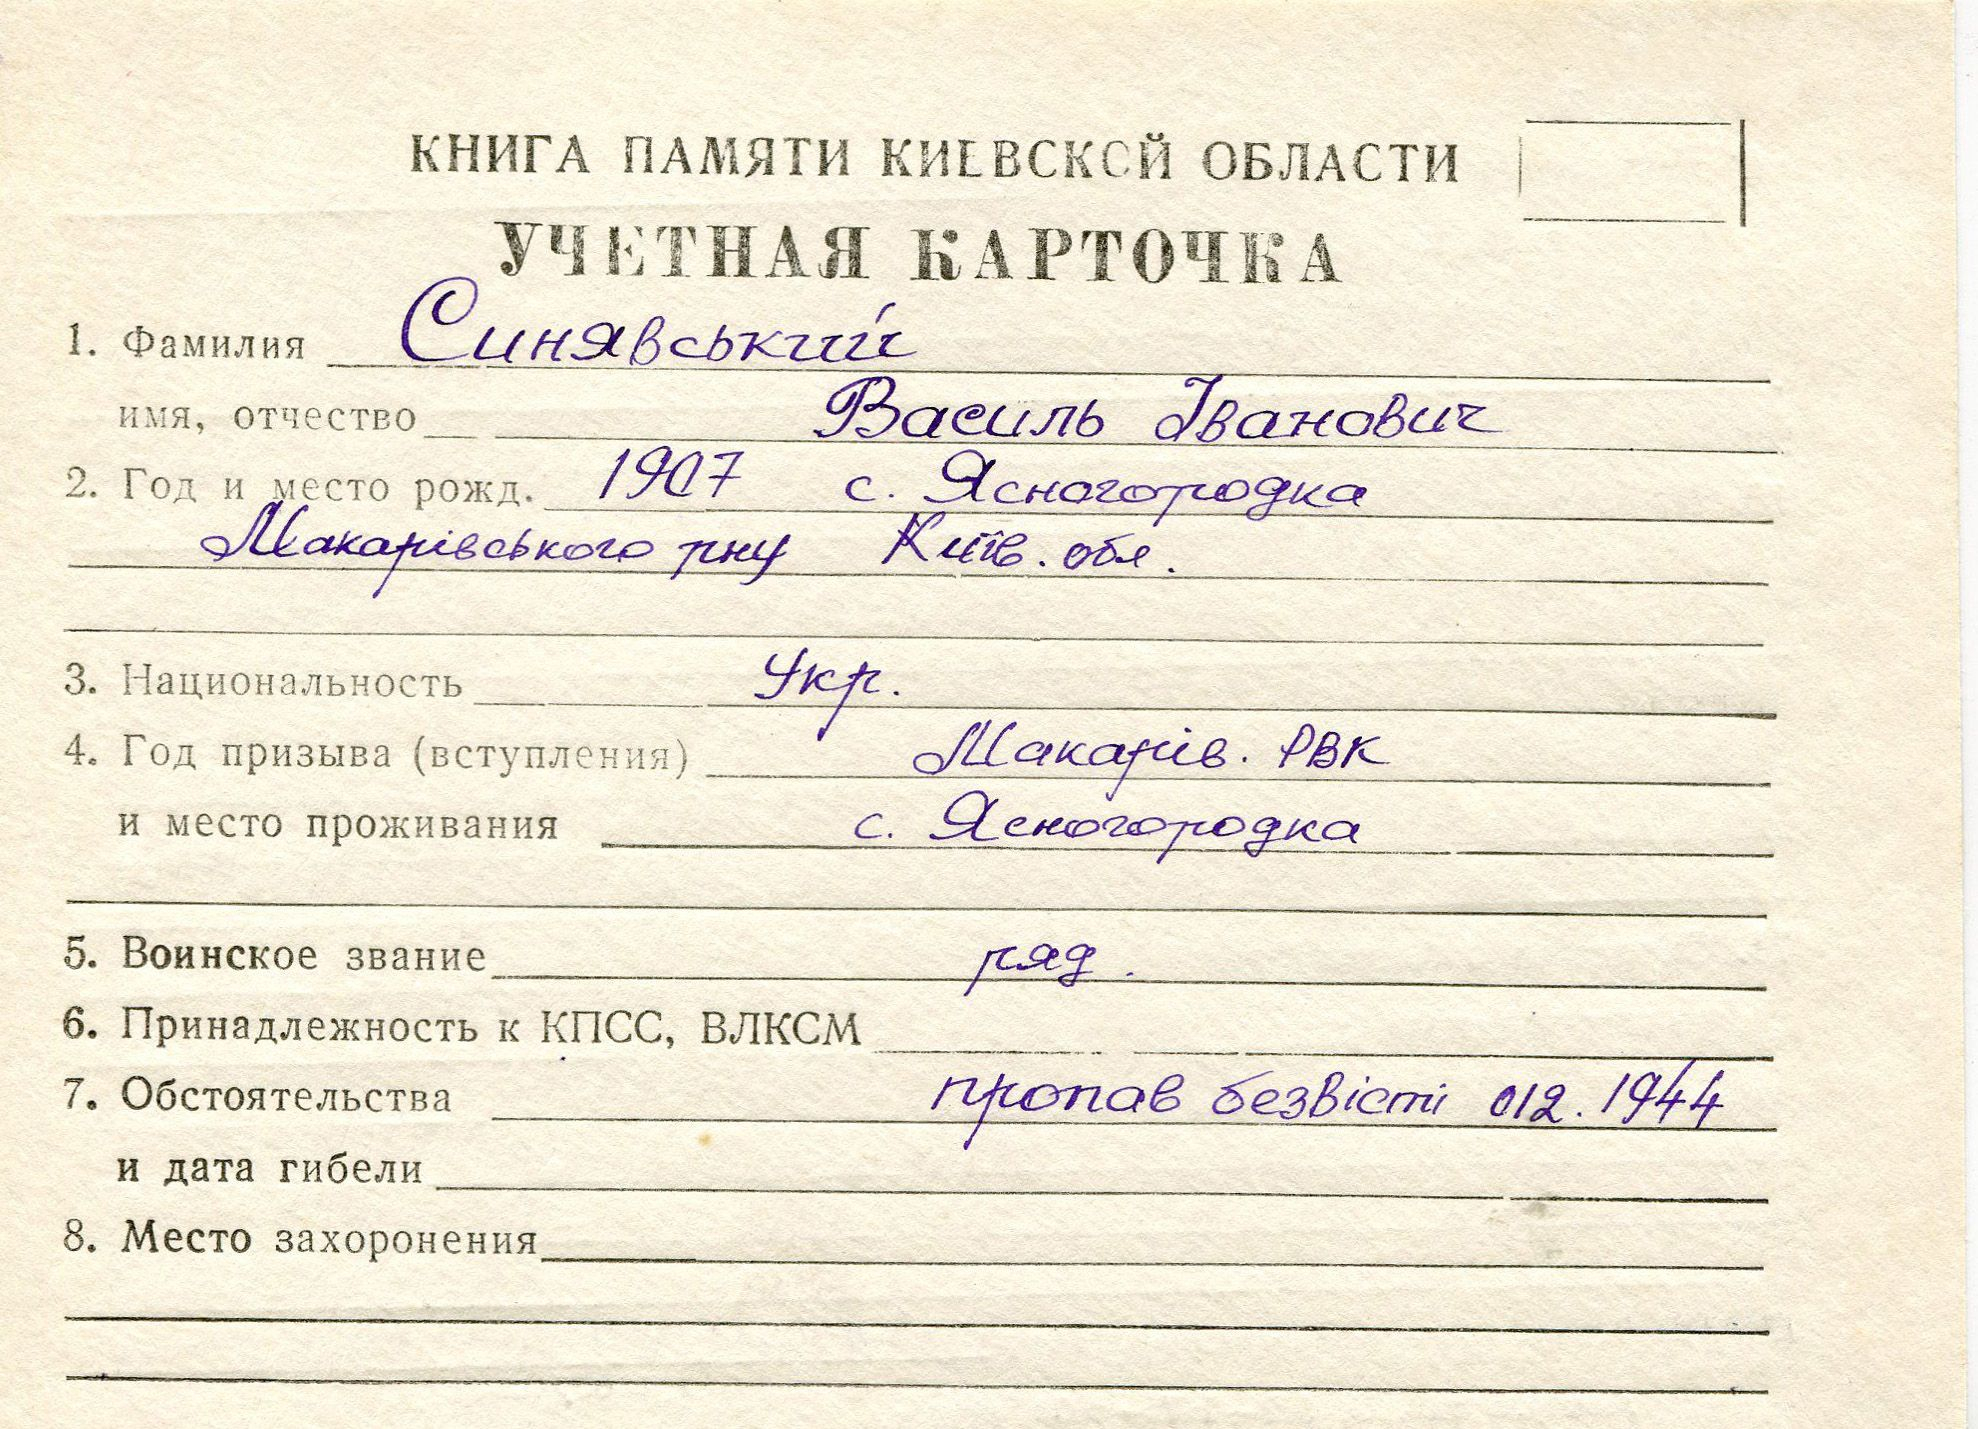 КНИГА ПАМЯТИ КИЕВСКОЙ ОБЛАСТИ
УЧЕТНАЯ КАРТОЧКА
1. Фамилия Синявський
имя, отчество Василь Іванович
2. Год и место рожд. 1907 с. Ясногородка
Макарівського рну Київ. обл.
3. Национальность Укр.
4. Год призыва (вступления) Макарів. РВК
и место проживания с. Ясногородка
5. Воинское звание ряд.
6. Принадлежность к КПСС, ВЛКСМ
7. Обстоятельства пропав безвісті 012. 1944
и дата гибели
8. Место захоронения